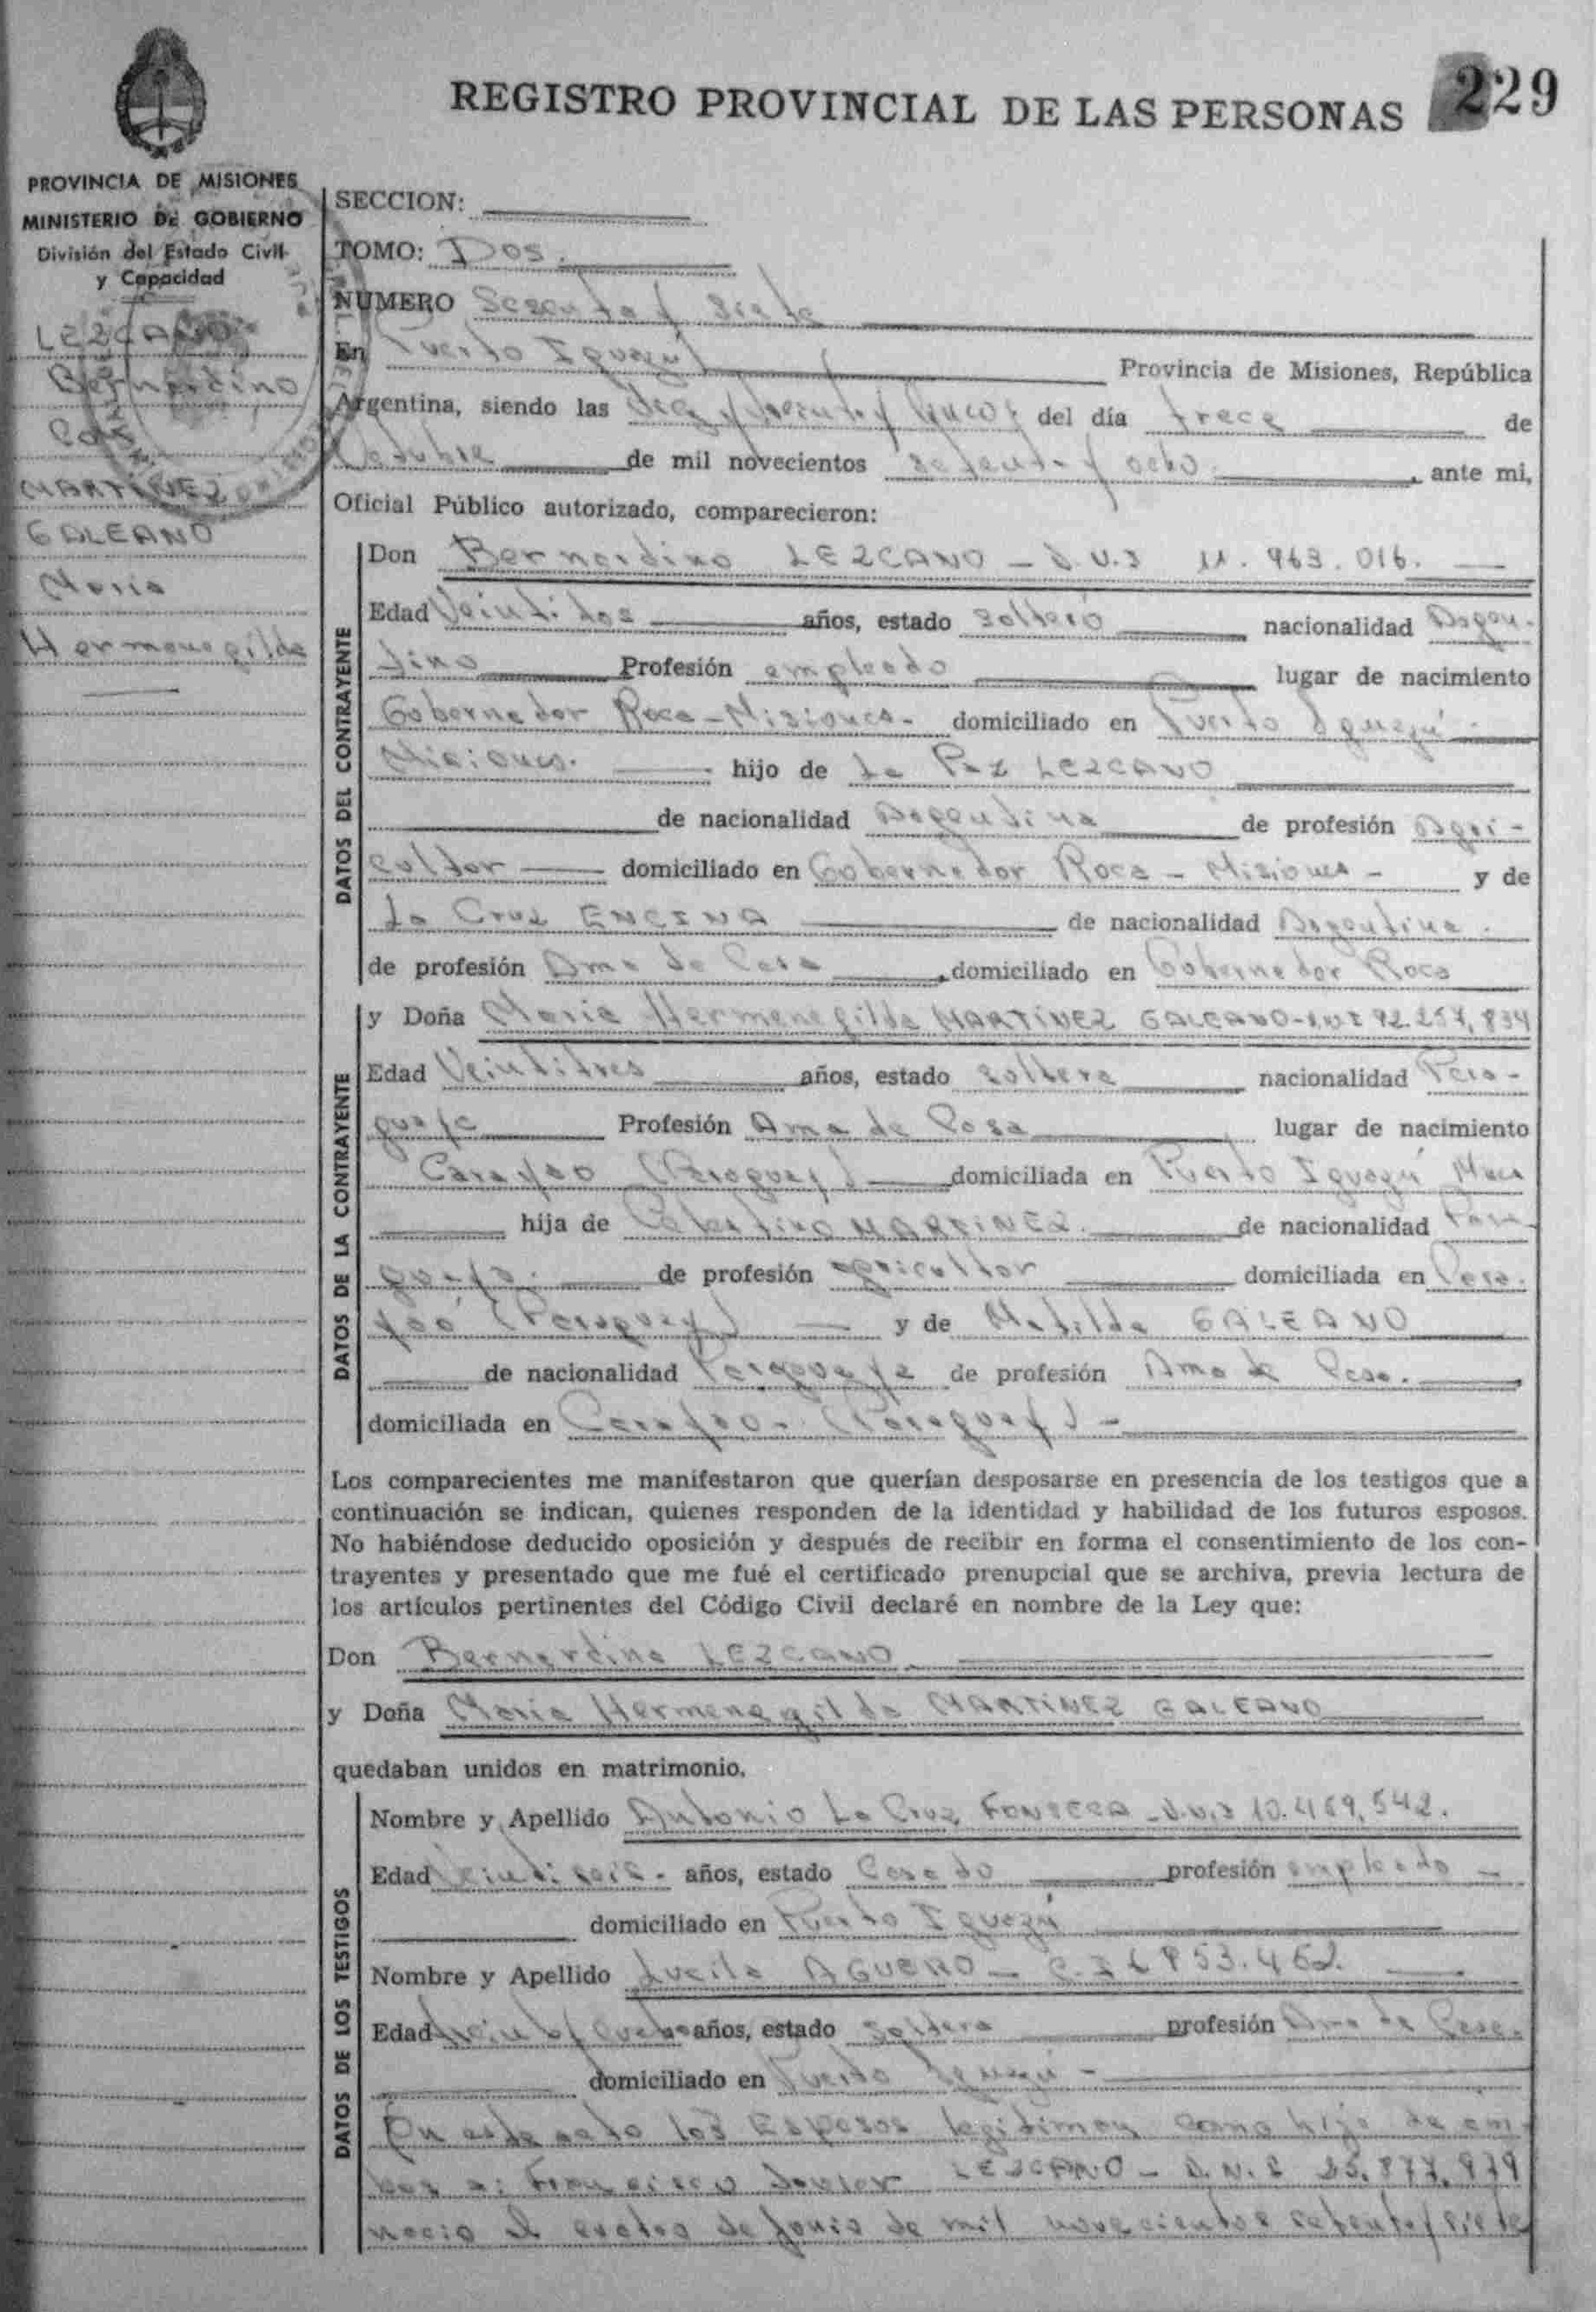 REGISTRO PROVINCIAL DE LAS PERSONAS 229
PROVINCIA DE MISIONES
MINISTERIO DE GOBIERNO
División del Estado Civil
y Capacidad
LEZCANO
Bernardino
Con
MARTINEZ
GALEANO
Maria
Hermenegilda
SECCION:
TOMO: Dos.
NUMERO Sesenta y Siete
En Puerto Iguazú Provincia de Misiones, República
Argentina, siendo las diez y treinta y cinco del día trece de
Octubre de mil novecientos setenta y ocho. ante mi,
Oficial Público autorizado, comparecieron:
DATOS DEL CONTRAYENTE
Don Bernardino LEZCANO - D.N.I 11.963.016.
Edad Veintidos años, estado soltero nacionalidad Argen-
tino Profesión empleado lugar de nacimiento
Gobernador Roca - Misiones - domiciliado en Puerto Iguazú -
Misiones. hijo de La Paz LEZCANO
de nacionalidad Argentina de profesión Agri-
cultor domiciliado en Gobernador Roca - Misiones - y de
La Cruz ENCINA de nacionalidad Argentina.
de profesión Ama de Casa, domiciliado en Gobernador Roca
DATOS DE LA CONTRAYENTE
y Doña Maria Hermenegilda MARTINEZ GALEANO - D.N.I 92.257.834
Edad Veintitres años, estado soltera nacionalidad Para-
guaya Profesión Ama de Casa lugar de nacimiento
Carayao (Paraguay) domiciliada en Puerto Iguazú Mnes
hija de Celestino MARTINEZ. de nacionalidad Para-
guayo. de profesión agricultor domiciliada en Cara-
yao (Paraguay) y de Matilde GALEANO
de nacionalidad Paraguaya de profesión Ama de Casa.
domiciliada en Carayao - (Paraguay) -
Los comparecientes me manifestaron que querían desposarse en presencia de los testigos que a
continuación se indican, quienes responden de la identidad y habilidad de los futuros esposos.
No habiéndose deducido oposición y después de recibir en forma el consentimiento de los con-
trayentes y presentado que me fué el certificado prenupcial que se archiva, previa lectura de
los artículos pertinentes del Código Civil declaré en nombre de la Ley que:
Don Bernardino LEZCANO
y Doña Maria Hermenegilda MARTINEZ GALEANO
quedaban unidos en matrimonio.
DATOS DE LOS TESTIGOS
Nombre y Apellido Antonio La Cruz FONSECA - D.N.I 10.469.542.
Edad Veintiseis - años, estado Casado profesión empleado -
domiciliado en Puerto Iguazú
Nombre y Apellido Lucila AGUERO - C.I 6 853.462.
Edad años, estado soltera profesión Ama de Casa.
domiciliado en Puerto Iguazú -
En este acto los Esposos legitiman como hijo de am-
bos a: Francisco Javier LEZCANO - D.N.I 25.877.979
nacio el cuatro de Junio de mil novecientos setenta y siete